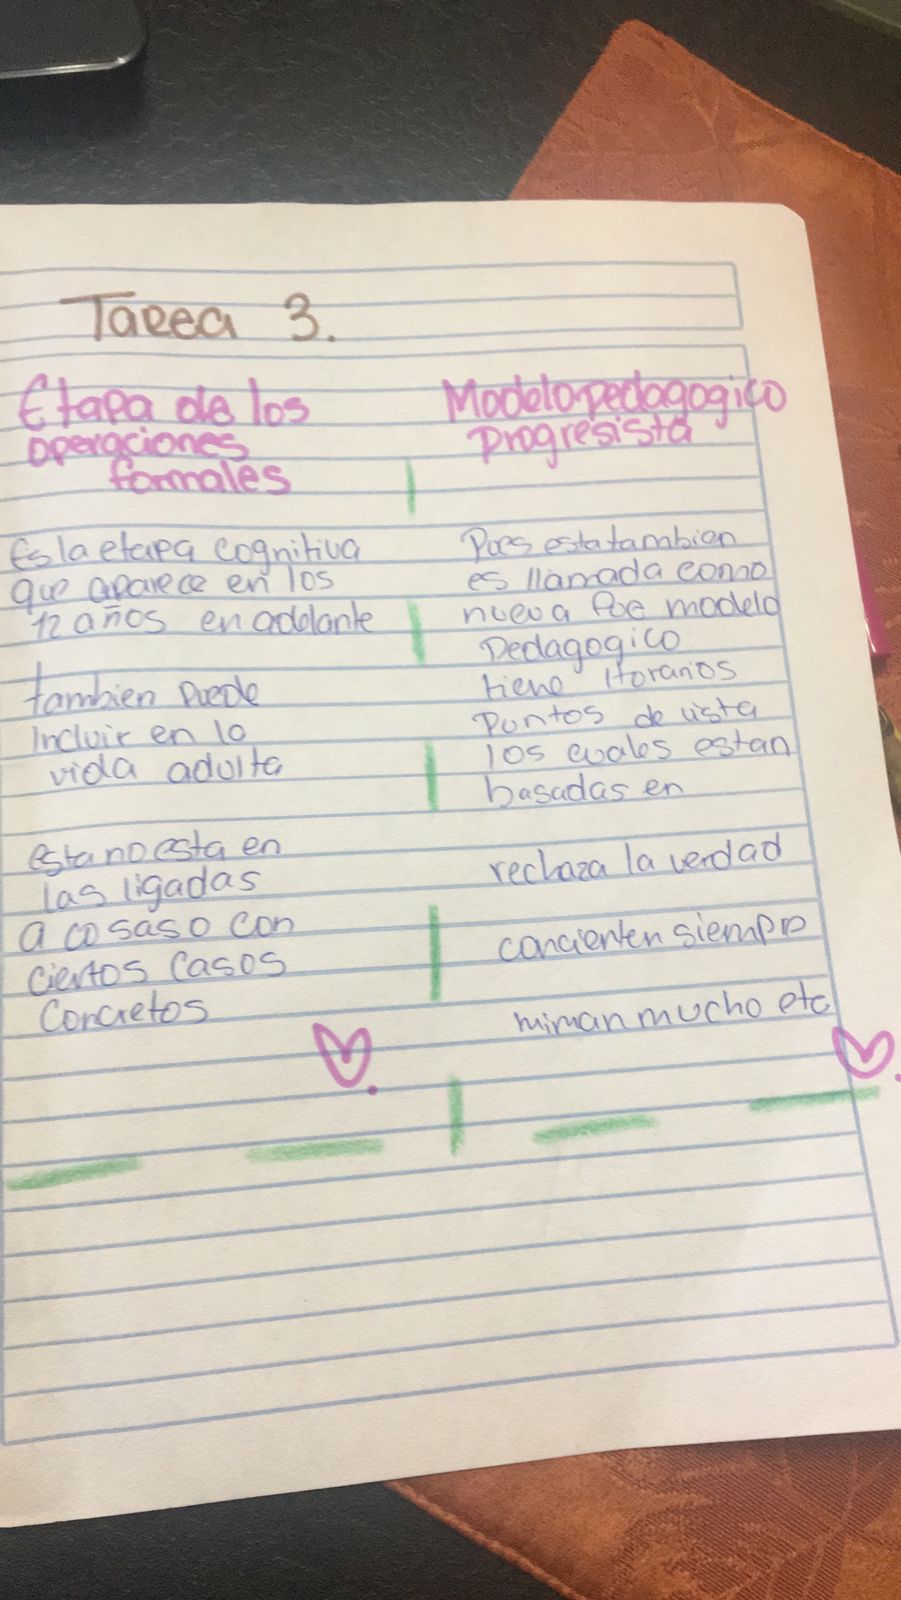 Tarea 3.
Etapa de los
operaciones
formales
Es la etapa cognitiva
que aparece en los
12 años en adelante
tambien puede
incluir en la
vida adulta
esta no esta en
las ligadas
a cosas o con
ciertos casos
Concretos
Modelo pedagogico
progresista
Pues esta tambien
es llamada como
nueva Poe modelo
Pedagogico
tiene Horarios
Puntos de vista
los cuales estan
basadas en
rechaza la verdad
concienten siempre
miman mucho etc